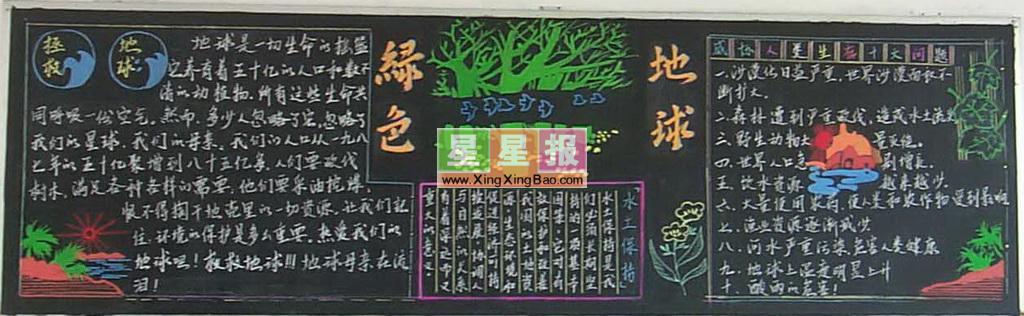 拯救
地球
地球是一切生命的摇篮
它养育着五十亿的人口和数不
清的动植物.所有这些生命共
同呼吸一份空气,然而,多少人忽略了它,忽略了
我们的星球,我们的母亲,我们的人口从一九八
七年的五十亿聚增到八十五亿多,人们要砍伐
树木,满足各种各样的需要,他们要采油挖煤,
恨不得掏干地壳里的一切资源,让我们记
住,环境的保护是多么重要,热爱我们的
地球吧!救救地球!!!地球母亲在流
泪!
緑色
地球
星星报
www.XingXingBao.com
水土保持
水土保持是我
们必须长期坚
持的一项基本
国策,它对有
效保护和
我国水土地资
源、生态环境和
促进经济可持
续发展,协调人
与自然的关系
有着
重大的意义.
威胁人类生存十大问题
一.沙漠化日益严重,世界沙漠面积不
断扩大.
二.森林遭到严重砍伐,造成水土流失
三.野生动物大 灭绝.
四.世界人口急剧增长.
五.饮水资源 越来越少.
六.大量使用农药,使人类和农作物受到影响
七.渔业资源逐渐减少
八.河水严重污染,危害人类健康
九.地球上温度明显上升
十.酸雨的危害!